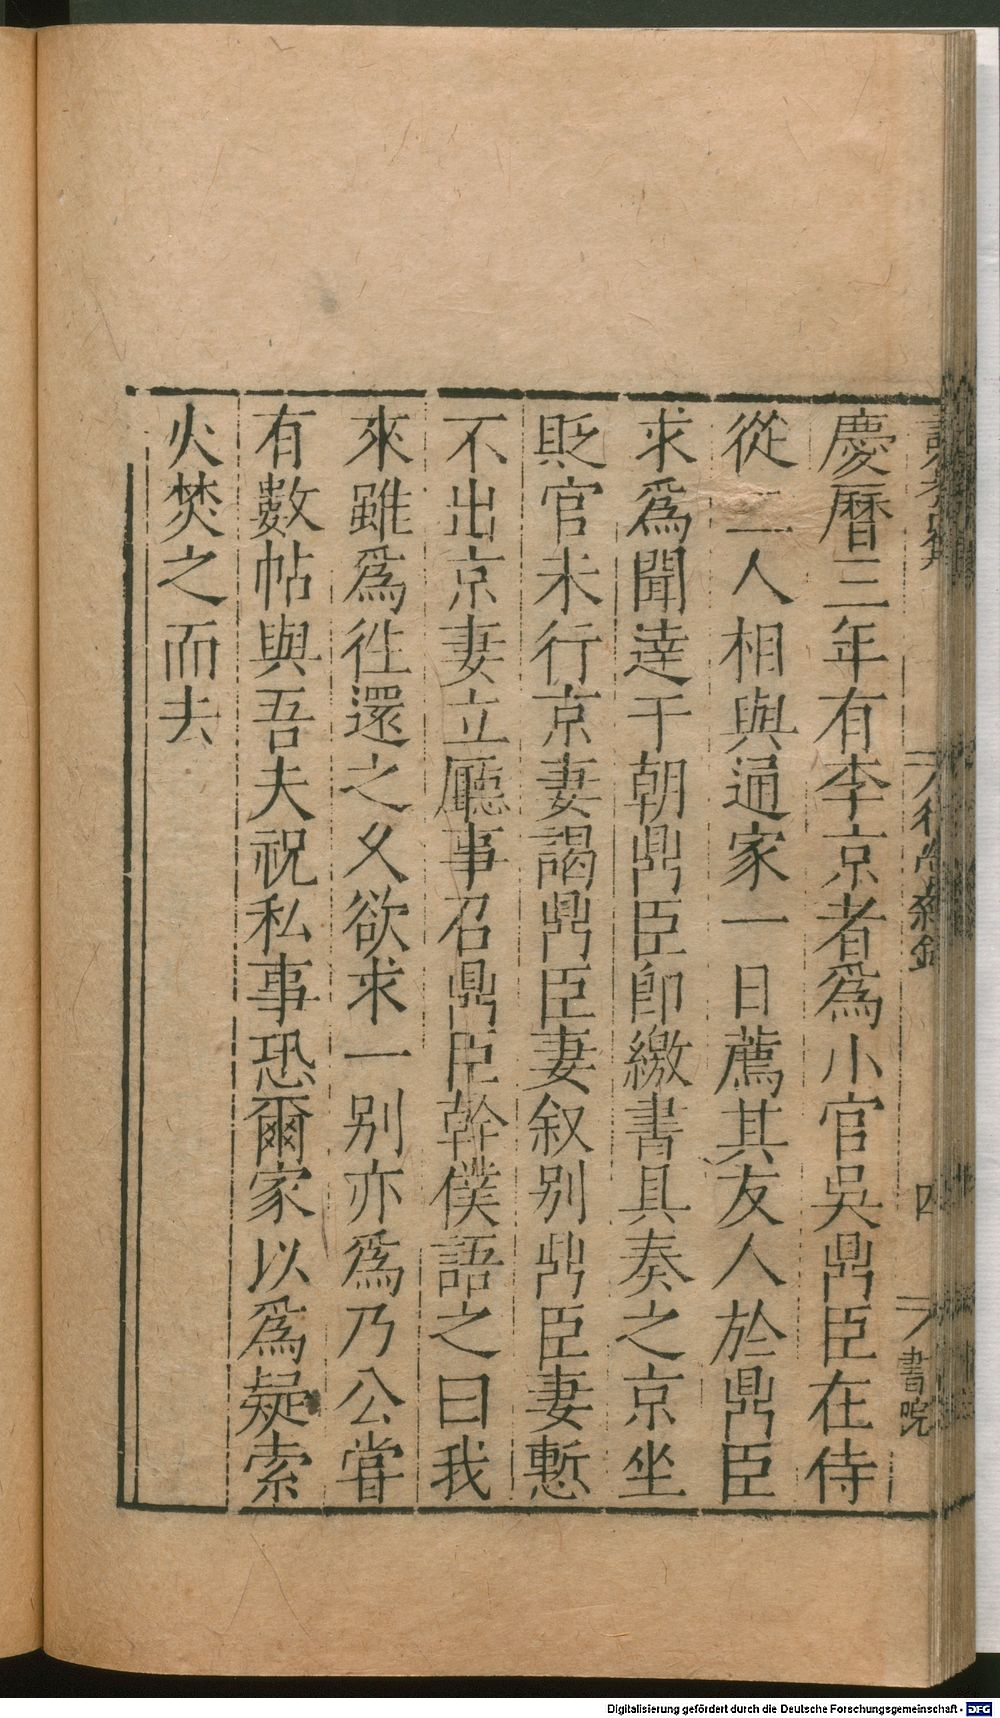 慶曆三年有李京者爲小官吳鼎臣在侍
從二人相與通家一日薦其友人於鼎臣
求爲聞達于朝鼎臣即繳書具奏之京坐
貶官未行京妻謁鼎臣妻叙别鼎臣妻慙
不出京妻立廳事召鼎臣幹僕語之曰我
來雖爲徃還之乆欲求一别亦爲乃公嘗
有數帖與吾夫祝私事恐爾家以爲疑索
火焚之而去
四
書院
Digitalisierung gefördert durch die Deutsche Forschungsgemeinschaft - DFG